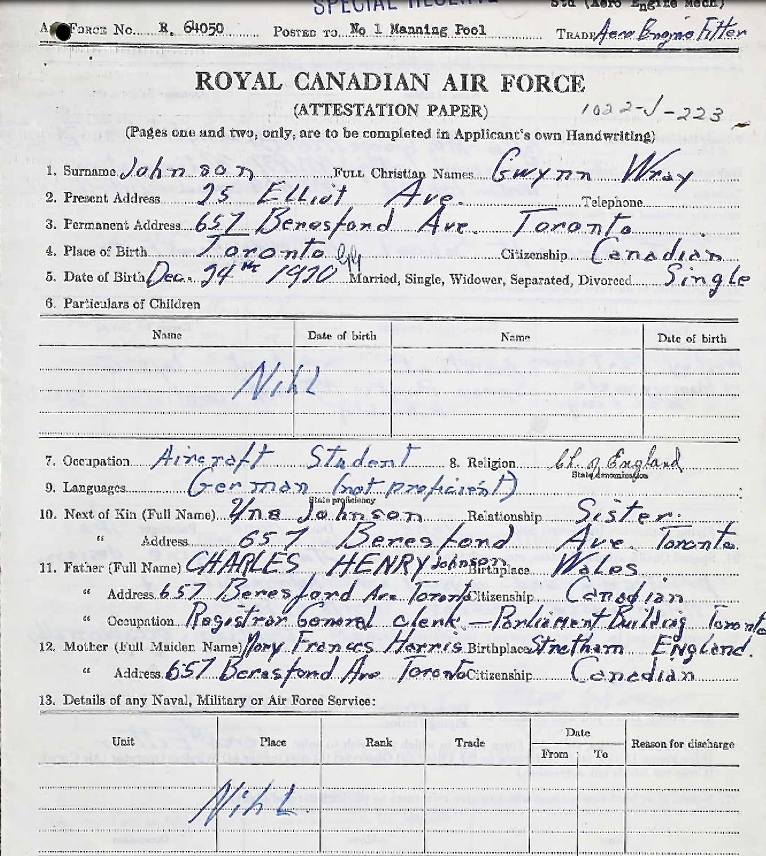 SPECIAL RESERVE Std (Aero Engine Mech)
Air Force No. R. 64050 Posted to No 1 Manning Pool Trade Aero Engine Fitter
ROYAL CANADIAN AIR FORCE
(ATTESTATION PAPER) 1022-J-223
(Pages one and two, only, are to be completed in Applicant's own Handwriting)
1. Surname Johnson Full Christian Names Gwynn Wray
2. Present Address 25 Elliot Ave. Telephone
3. Permanent Address 657 Beresford Ave. Toronto
4. Place of Birth Toronto Citizenship Canadian
5. Date of Birth Dec. 24th 1920 Married, Single, Widower, Separated, Divorced Single
6. Particulars of Children
Name Date of birth Name Date of birth
Nil
7. Occupation Aircraft Student 8. Religion Ch. of England
State denomination
9. Languages German (not proficient)
State proficiency
10. Next of Kin (Full Name) Yna Johnson Relationship Sister.
" Address 657 Beresford Ave Toronto.
11. Father (Full Name) CHARLES HENRY Johnson Birthplace Wales
" Address 657 Beresford Ave Toronto Citizenship Canadian
" Occupation Registrar General clerk - Parliament Building Toronto
12. Mother (Full Maiden Name) Mary Frances Harris Birthplace Stretham England.
" Address 657 Beresford Ave Toronto Citizenship Canadian
13. Details of any Naval, Military or Air Force Service:
Unit Place Rank Trade Date Reason for discharge
From To
Nil